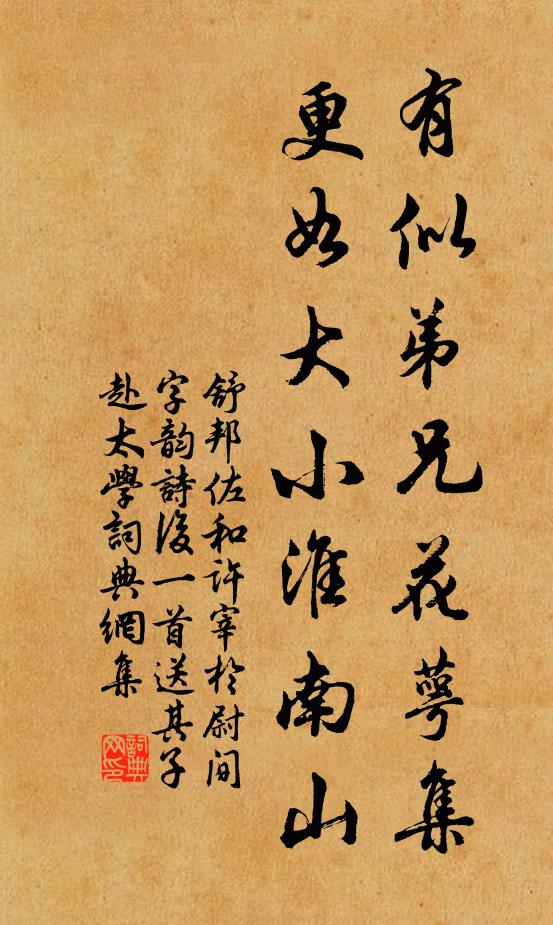 有似弟兄花萼集
更如大小淮南山
舒邦佐和許宰於尉間
字韵詩後一首送其子
赴太學詞典網集
詞典
网印